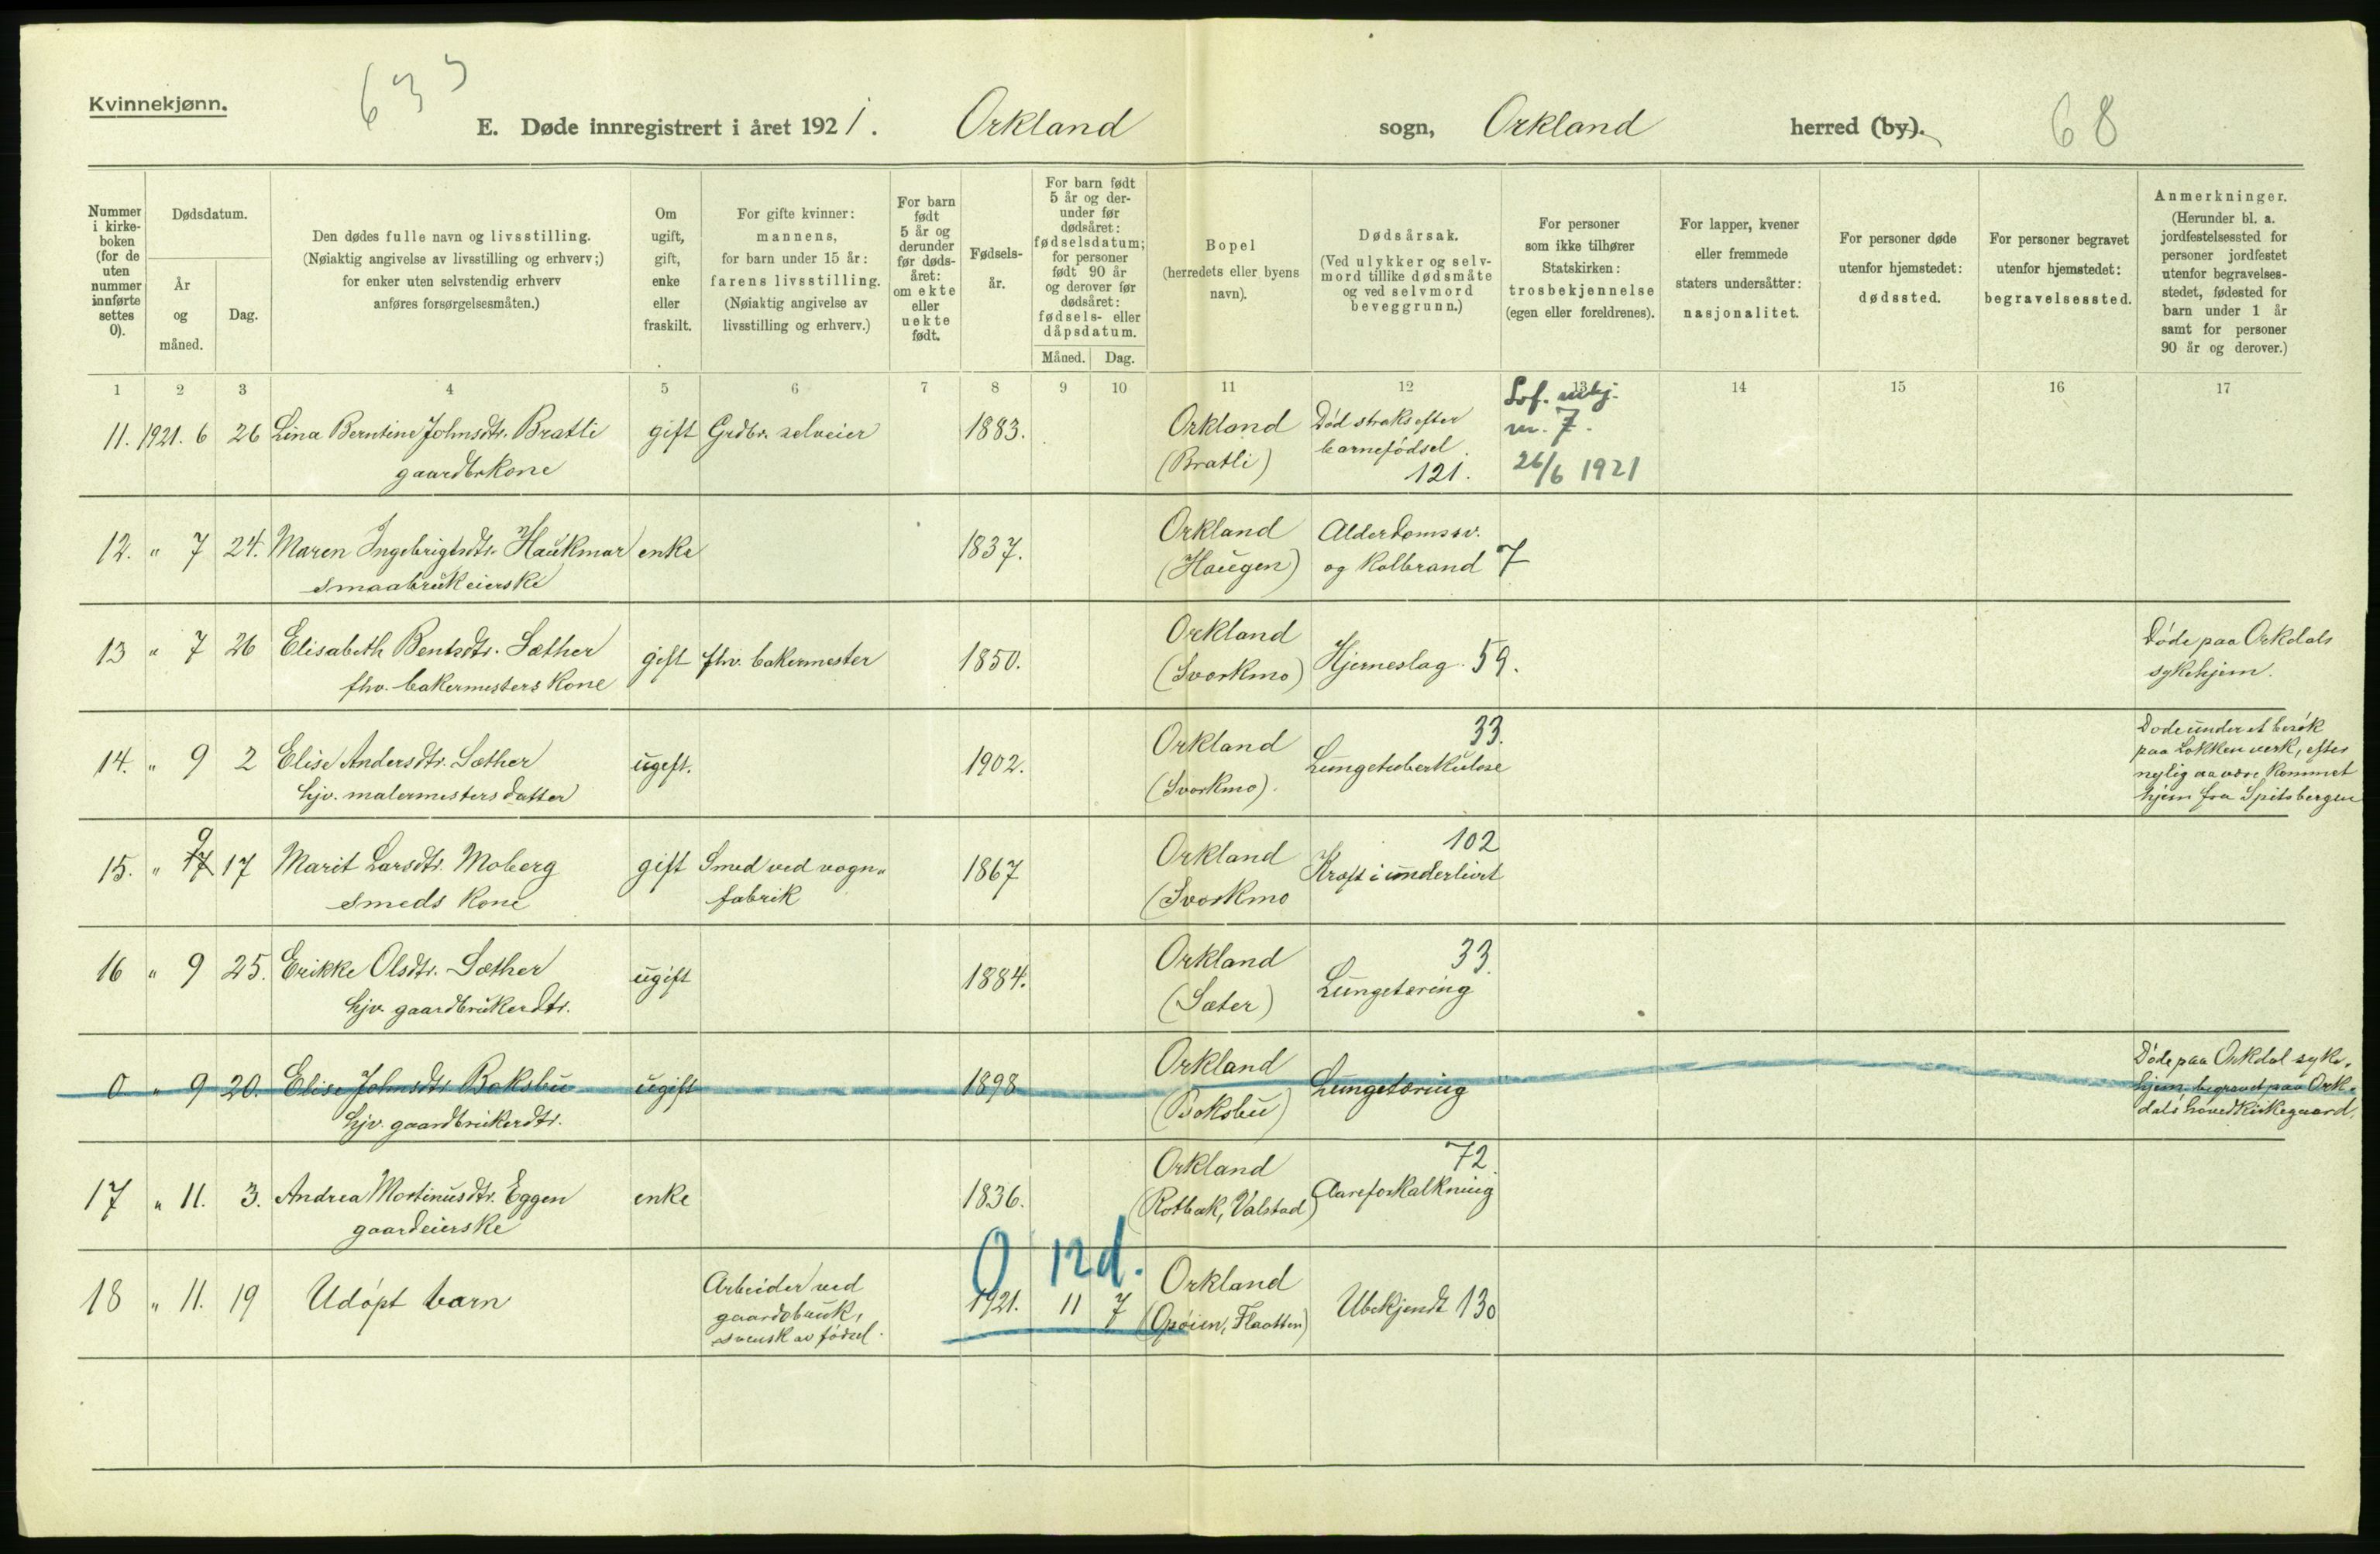 633
Kvinnekjønn.
E. Døde innregistrert i året 1921. Orkland sogn, Orkland herred (by). 68
Nummer i kirke-boken (for de uten nummer innførte settes 0).
Dødsdatum.
År og måned.
Dag.
Den dødes fulle navn og livsstilling.
(Nøiaktig angivelse av livsstilling og erhverv;)
for enker uten selvstendig erhverv
anføres forsørgelsesmåten.)
Om ugift, gift, enke eller fraskilt.
For gifte kvinner:
mannens,
for barn under 15 år:
farens livsstilling.
(Nøiaktig angivelse av
livsstilling og erhverv.)
For barn født 5 år og derunder før døds-året: om ekte eller uekte født.
Fødsels-år.
For barn født 5 år og der-under før dødsåret: fødselsdatum; for personer født 90 år og derover før dødsåret: fødsels- eller dåpsdatum.
Måned. Dag.
Bopel
(herredets eller byens
navn).
Dødsårsak.
(Ved ulykker og selv-
mord tillike dødsmåte
og ved selvmord
beveggrunn.)
For personer
som ikke tilhører
Statskirken:
trosbekjennelse
(egen eller foreldrenes).
For lapper, kvener
eller fremmede
staters undersåtter:
nasjonalitet.
For personer døde
utenfor hjemstedet:
dødssted.
For personer begravet
utenfor hjemstedet:
begravelsessted.
Anmerkninger.
(Herunder bl. a.
jordfestelsessted for
personer jordfestet
utenfor begravelses-
stedet, fødested for
barn under 1 år
samt for personer
90 år og derover.)
1 2 3 4 5 6 7 8 9 10 11 12 13 14 15 16 17
11. 1921. 6 26 Lina Berntine Johnsdtr. Bratli gift Grdbr. selveier 1883. Orkland Død straks efter m. 7.
gaardbrkone (Bratli) barnefødsel. 121. 26/6 1921
12. " 7 24. Maren Ingebrigtsdtr. Haukmar enke 1837. Orkland Alderdomssv.
smaabrukeierske (Haugen) og Kolbrand 7
13 " 7 26 Elisabeth Bentsdtr. Sæther gift fhv. bakermester 1850. Orkland Hjerneslag. 59. Døde paa Orkdals
fhv. bakermesters kone (Svorkmo) sykehjem.
14. " 9 2 Elise Andersdtr. Sæther ugift. 1902. Orkland 33. Døde under et besøk
hjv. malermesters datter (Svorkmo). Lungetuberkulose paa Løkken verk, efter
nylig aa være kommet
hjem fra Spitsbergen
15. " 17 9 17 Marit Larsdtr. Moberg gift Smed ved vogn- 1867 Orkland 102
smeds kone fabrik (Svorkmo Kræft i underlivet
16 " 9 25. Erikke Olsdtr. Sæther ugift 1884. Orkland 33.
hjv. gaardbrukerdtr. (Sæter) Lungetæring
0 " 9 20. Elise Johnsdtr. Boksbu ugift 1898 Orkland Lungetæring Døde paa Orkdal syke-
hjv. gaardbrukerdtr. (Boksbu) hjem, begravet paa Ork-
dals hovedkirkegaard.
17 " 11. 3. Andrea Martinusdtr. Eggen enke 1836. Orkland 72.
gaardeierske (Rotbæk, Valstad) Aareforkalkning
0 12d.
18 " 11. 19 Udøpt barn Arbeider ved 1921. 11 7 Orkland Ubekjendt 130
gaardsbruk, (Opøien, Flaatten)
svensk av fødsel.